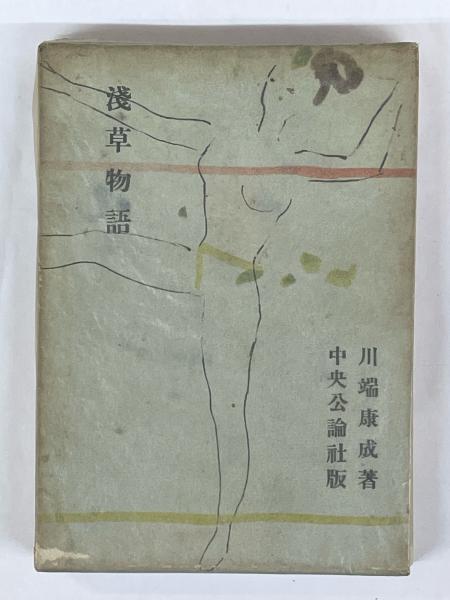 淺草物語
川端康成著
中央公論社版